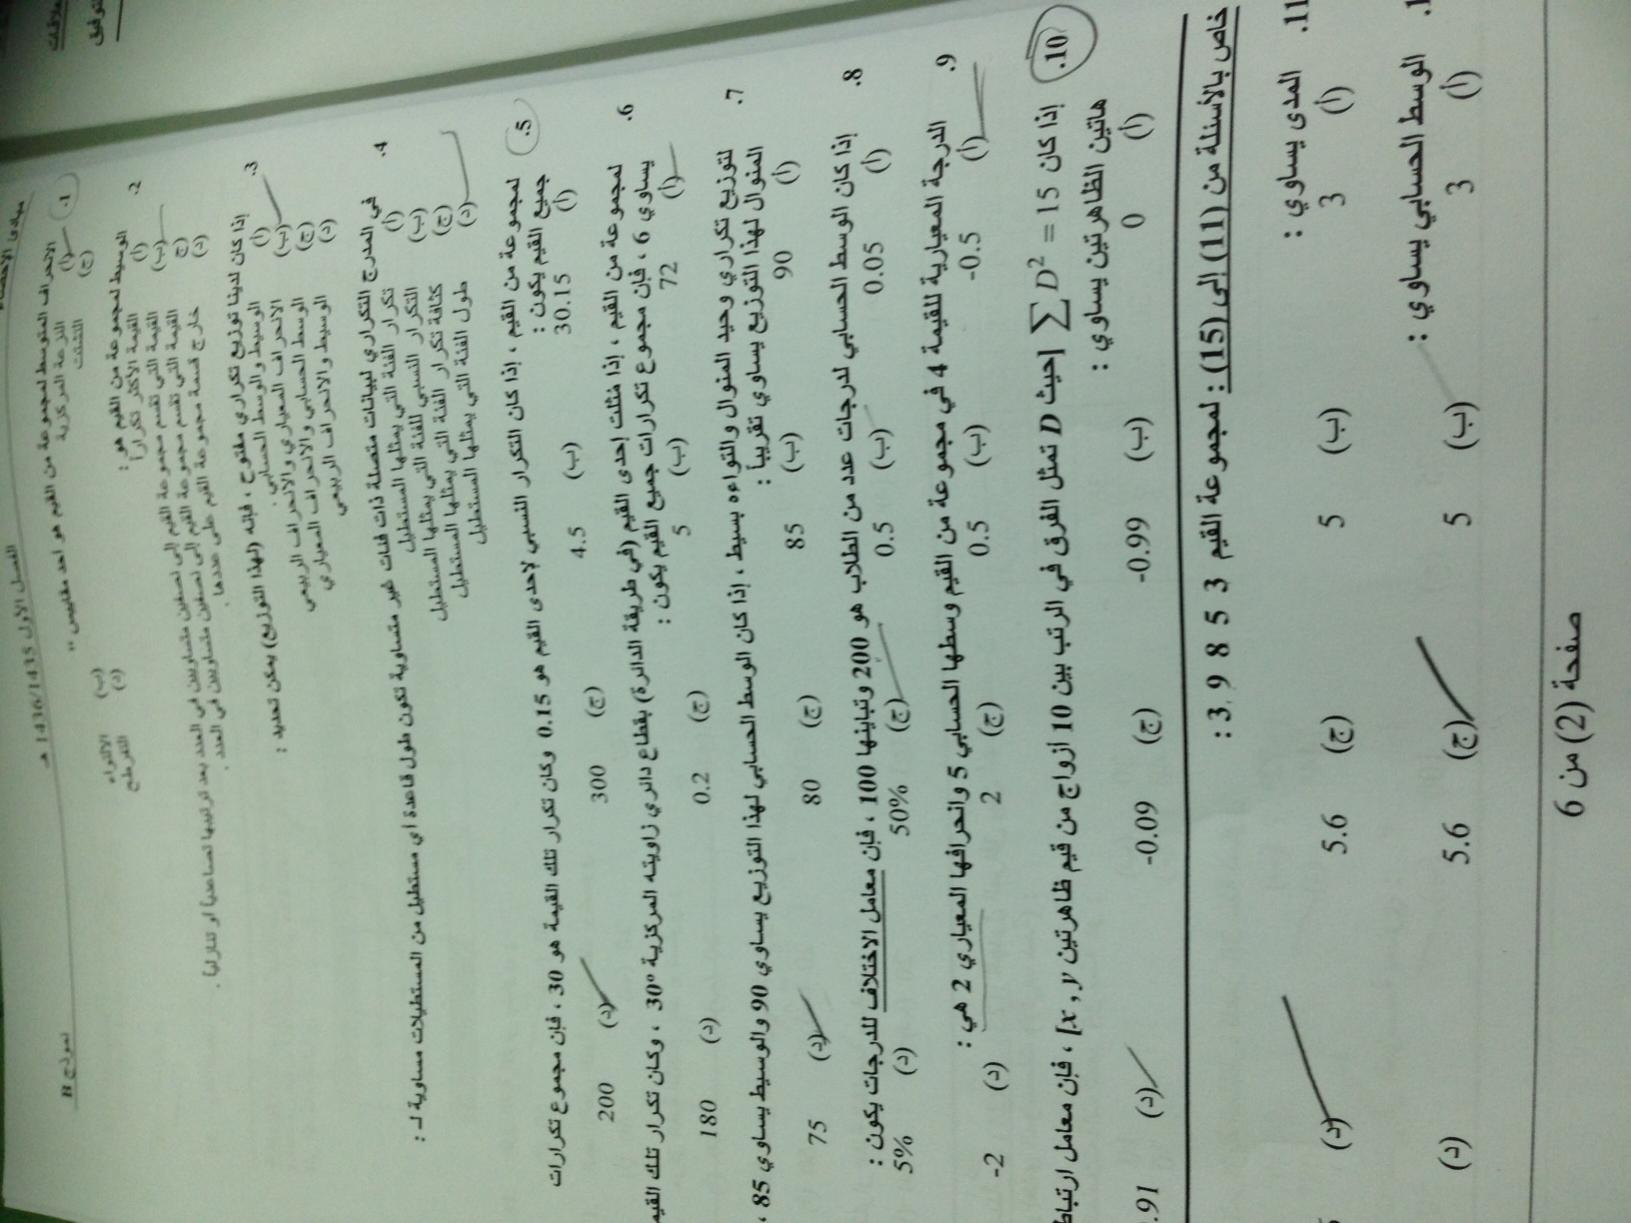 مبادئ الإحصاء
الفصل الأول 1436/1435 هـ
نموذج B
1. الانحراف المتوسط لمجموعة من القيم هو أحد مقاييس
(أ) النزعة المركزية (ب) الالتواء
(ج) التشتت (د) التفرطح
2. الوسيط لمجموعة من القيم هو :
(أ) القيمة الأكثر تكراراً
(ب) القيمة التي تقسم مجموعة القيم إلى نصفين متساويين في العدد بعد ترتيبها تصاعدياً أو تنازلياً .
(ج) القيمة التي تقسم مجموعة القيم إلى نصفين متساويين في العدد .
(د) خارج قسمة مجموعة القيم على عددها .
3. إذا كان لدينا توزيع تكراري مفتوح ، فإنه (لهذا التوزيع) يمكن تحديد :
(أ) الوسيط والوسط الحسابي .
(ب) الانحراف المعياري والانحراف الربيعي
(ج) الوسط الحسابي والانحراف المعياري
(د) الوسيط والانحراف الربيعي
4. في المدرج التكراري لبيانات متصلة ذات فئات غير متساوية تكون طول قاعدة أي مستطيل من المستطيلات مساوية لـ :
(أ) تكرار الفئة التي يمثلها المستطيل
(ب) التكرار النسبي للفئة التي يمثلها المستطيل
(ج) كثافة تكرار الفئة التي يمثلها المستطيل
(د) طول الفئة التي يمثلها المستطيل
5. لمجموعة من القيم ، إذا كان التكرار النسبي لإحدى القيم هو 0.15 وكان تكرار تلك القيمة هو 30 ، فإن مجموع تكرارات
جميع القيم يكون :
(أ) 30.15 (ب) 4.5 (ج) 300 (د) 200
6. لمجموعة من القيم ، إذا مثلت إحدى القيم (في طريقة الدائرة) بقطاع دائري زاويته المركزية 30° ، وكان تكرار تلك القيم
يساوي 6 ، فإن مجموع تكرارات جميع القيم يكون :
(أ) 72 (ب) 5 (ج) 0.2 (د) 180
7. لتوزيع تكراري وحيد المنوال والتواءه بسيط ، إذا كان الوسط الحسابي لهذا التوزيع يساوي 90 والوسيط يساوي 85 ،
المنوال لهذا التوزيع يساوي تقريباً :
(أ) 90 (ب) 85 (ج) 80 (د) 75
8. إذا كان الوسط الحسابي لدرجات عدد من الطلاب هو 200 وتباينها 100 ، فإن معامل الاختلاف للدرجات يكون :
(أ) 0.05 (ب) 0.5 (ج) 50% (د) 5%
9. الدرجة المعيارية للقيمة 4 في مجموعة من القيم وسطها الحسابي 5 وانحرافها المعياري 2 هي :
(أ) -0.5 (ب) 0.5 (ج) 2 (د) -2
10. إذا كان ∑ D² = 15 [حيث D تمثل الفرق في الرتب بين 10 أزواج من قيم ظاهرتين x , y] ، فإن معامل ارتباط
هاتين الظاهرتين يساوي :
(أ) 0 (ب) -0.99 (ج) -0.09 (د) .91
خاص بالأسئلة من (11) إلى (15) : لمجموعة القيم 3 5 8 9 3 :
11. المدى يساوي :
(أ) 3 (ب) 5 (ج) 5.6 (د)
الوسط الحسابي يساوي :
(أ) 3 (ب) 5 (ج) 5.6 (د)
صفحة (2) من 6